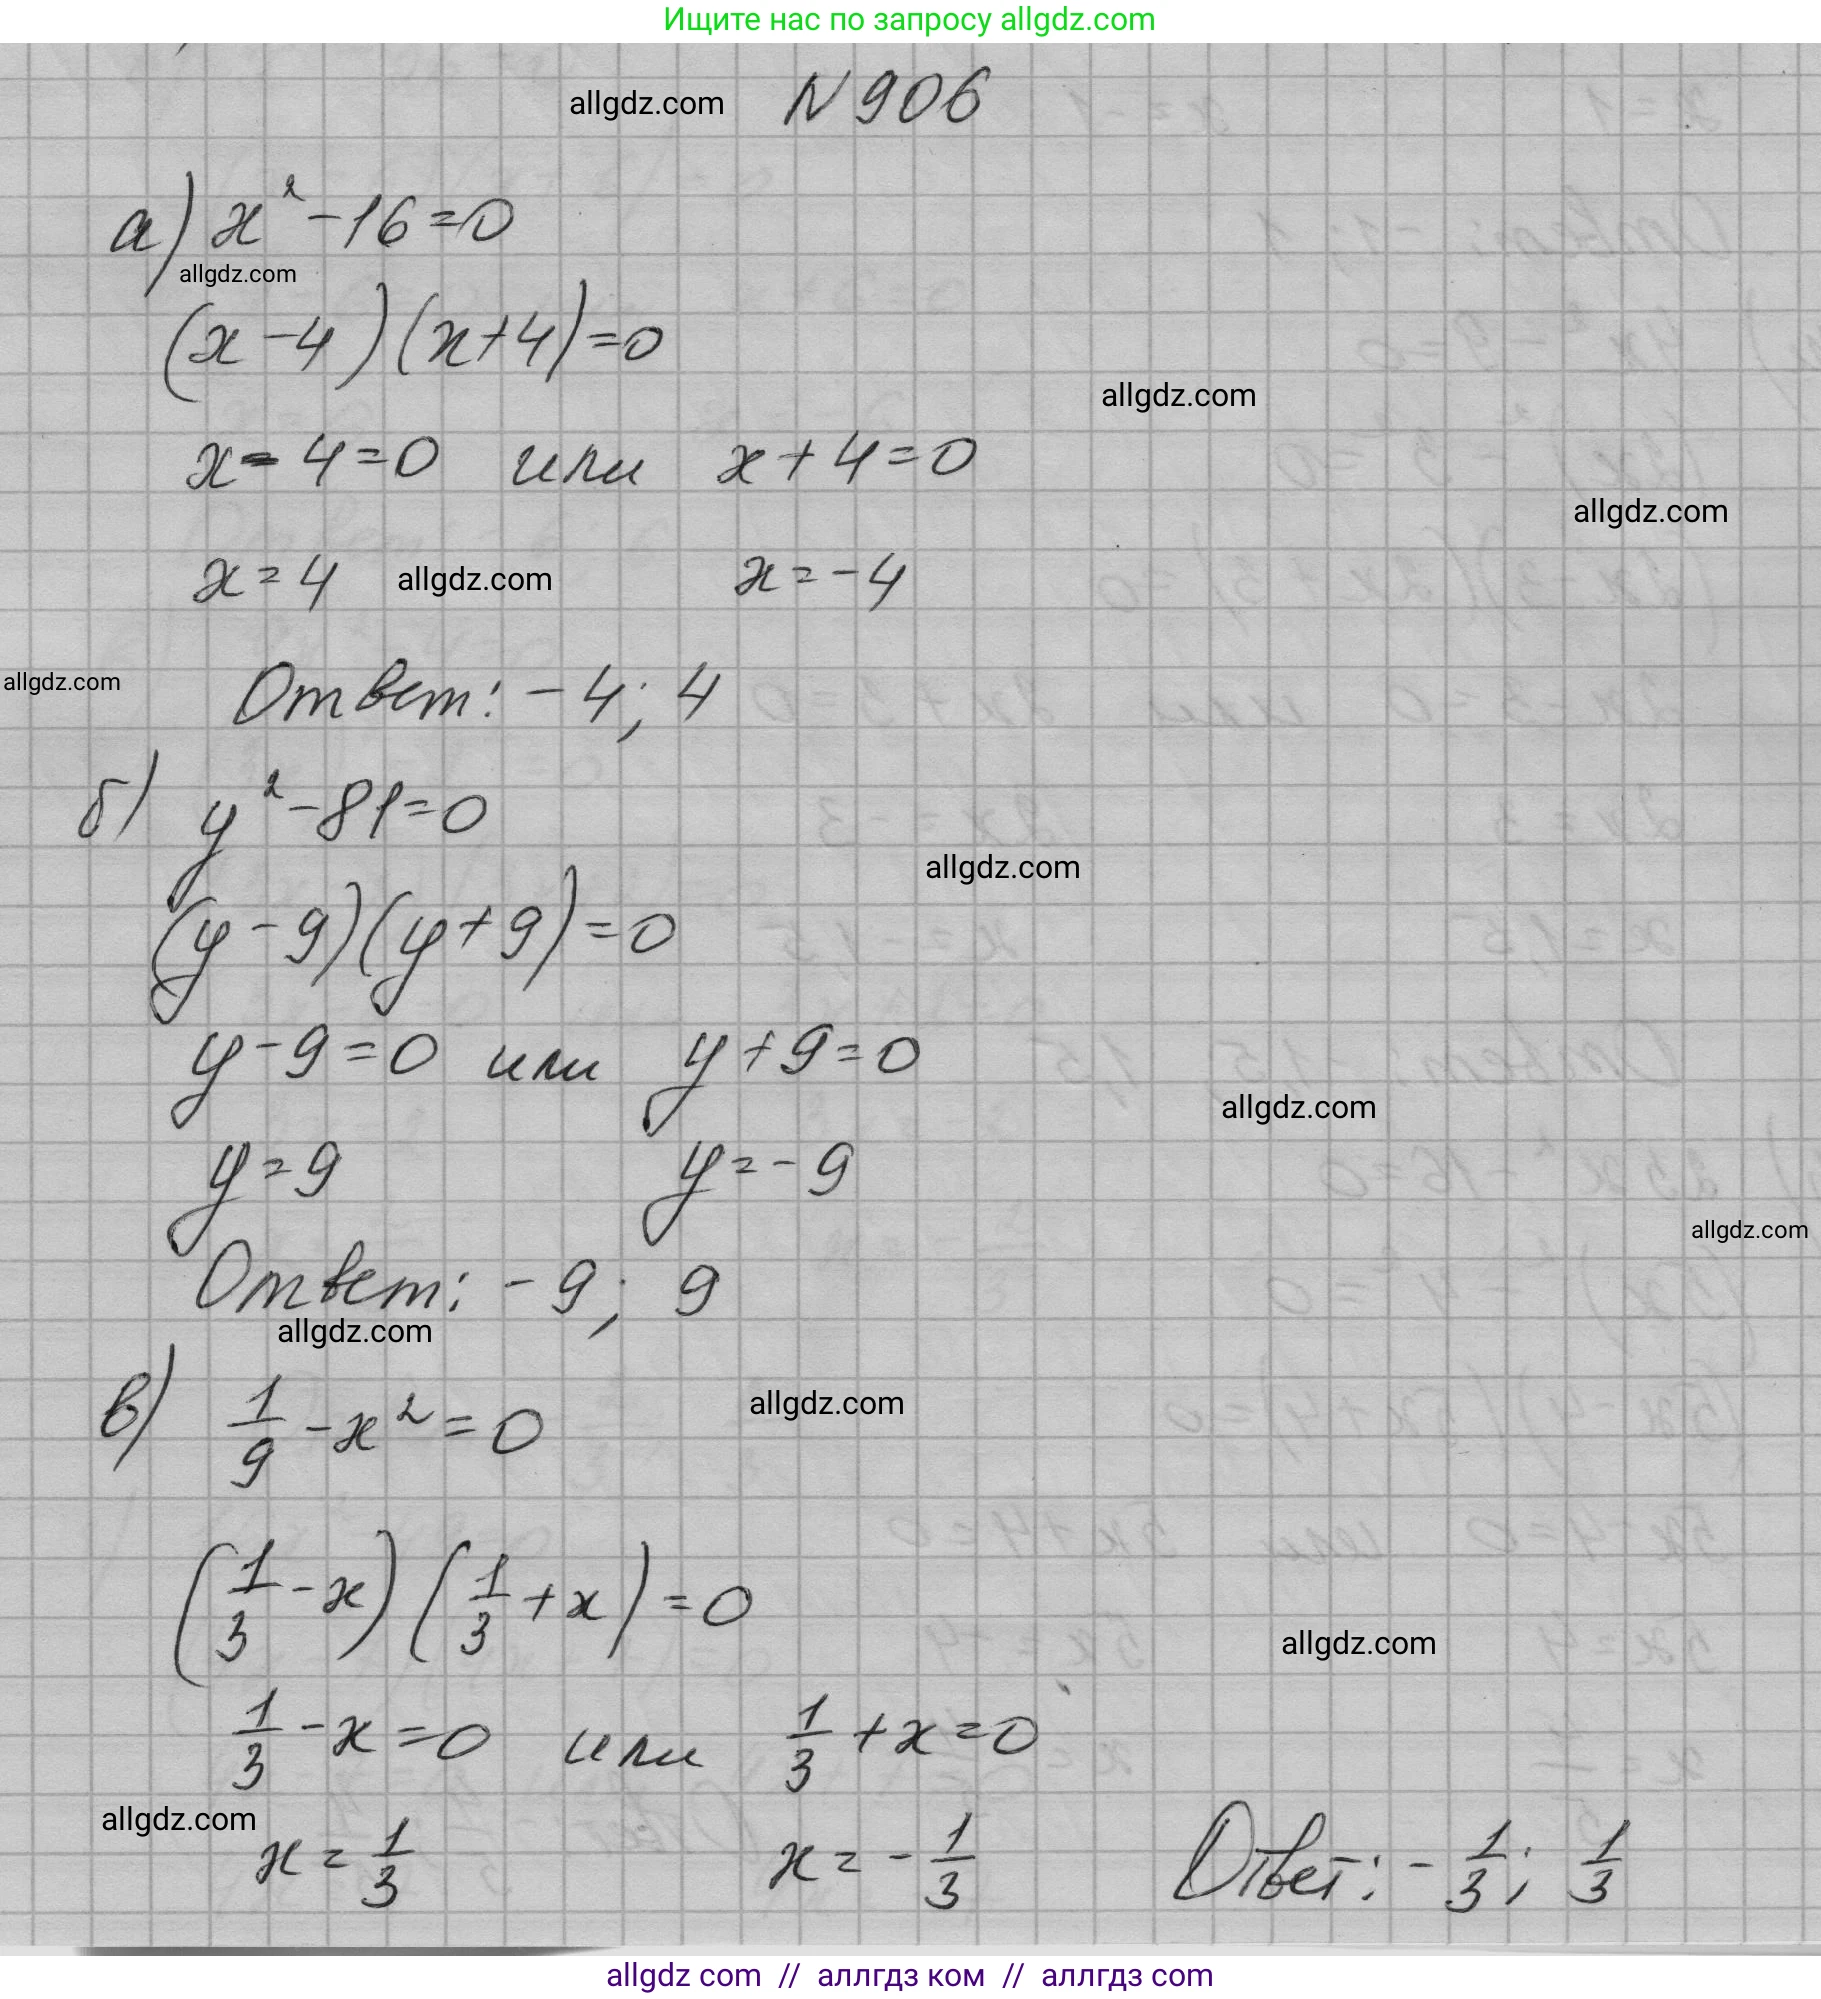 Ищите нас по запросу allgdz.com
allgdz.com N 906
а) x² - 16 = 0
allgdz.com
(x - 4)(x + 4) = 0
allgdz.com
x - 4 = 0 или x + 4 = 0
allgdz.com
x = 4 allgdz.com x = -4
allgdz.com
Ответ: -4; 4
б) y² - 81 = 0
allgdz.com
(y - 9)(y + 9) = 0
y - 9 = 0 или y + 9 = 0
allgdz.com
y = 9 y = -9
allgdz.com
Ответ: -9; 9
allgdz.com
в) 1/9 - x² = 0
allgdz.com
(1/3 - x)(1/3 + x) = 0
allgdz.com
1/3 - x = 0 или 1/3 + x = 0
allgdz.com
x = 1/3 x = -1/3 Ответ: -1/3; 1/3
allgdz com // аллгдз ком // аллгдз com